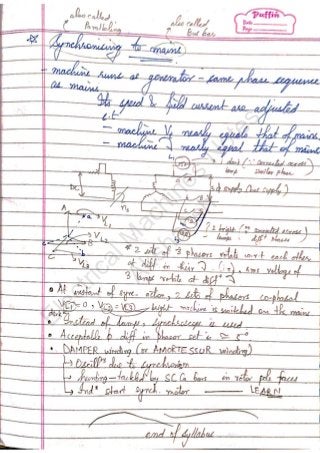 also called
Paralleling
also called
Bus bar
Puffin
Date
Page
Synchronizing to mains
machine runs as generator - same phase sequence
as mains
Its speed & field current are adjusted
s.t
- machine Vt nearly equals that of mains.
- machine f nearly equal that of mains
1 dark (∵ connected across)
lamp similar phase
3ϕ supply (bus supply)
2 bright (∵ connected across)
lamps diff phases
DC
ns
A
VL1
VL2
B
C
VL3
* 2 sets of 3 phasors rotate w.r.t each other
at diff in their f , rms voltage of
3 lamps rotate at diff f
• At instant of sync. action, 2 sets of phasors co-phasal
VL1=0, VL2=VL3
dark bright machine is switched on the mains
• Instead of lamps, synchroscope is used
• Acceptable diff in phasor set is ≈ 5°
• DAMPER winding (or AMORTESSUR winding)
→ Oscillⁿ due to synchronism
→ Hunting - tackled by SC Cu bars in rotor pole faces
→ Indⁿ start synch. motor — LEARN
end of syllabus